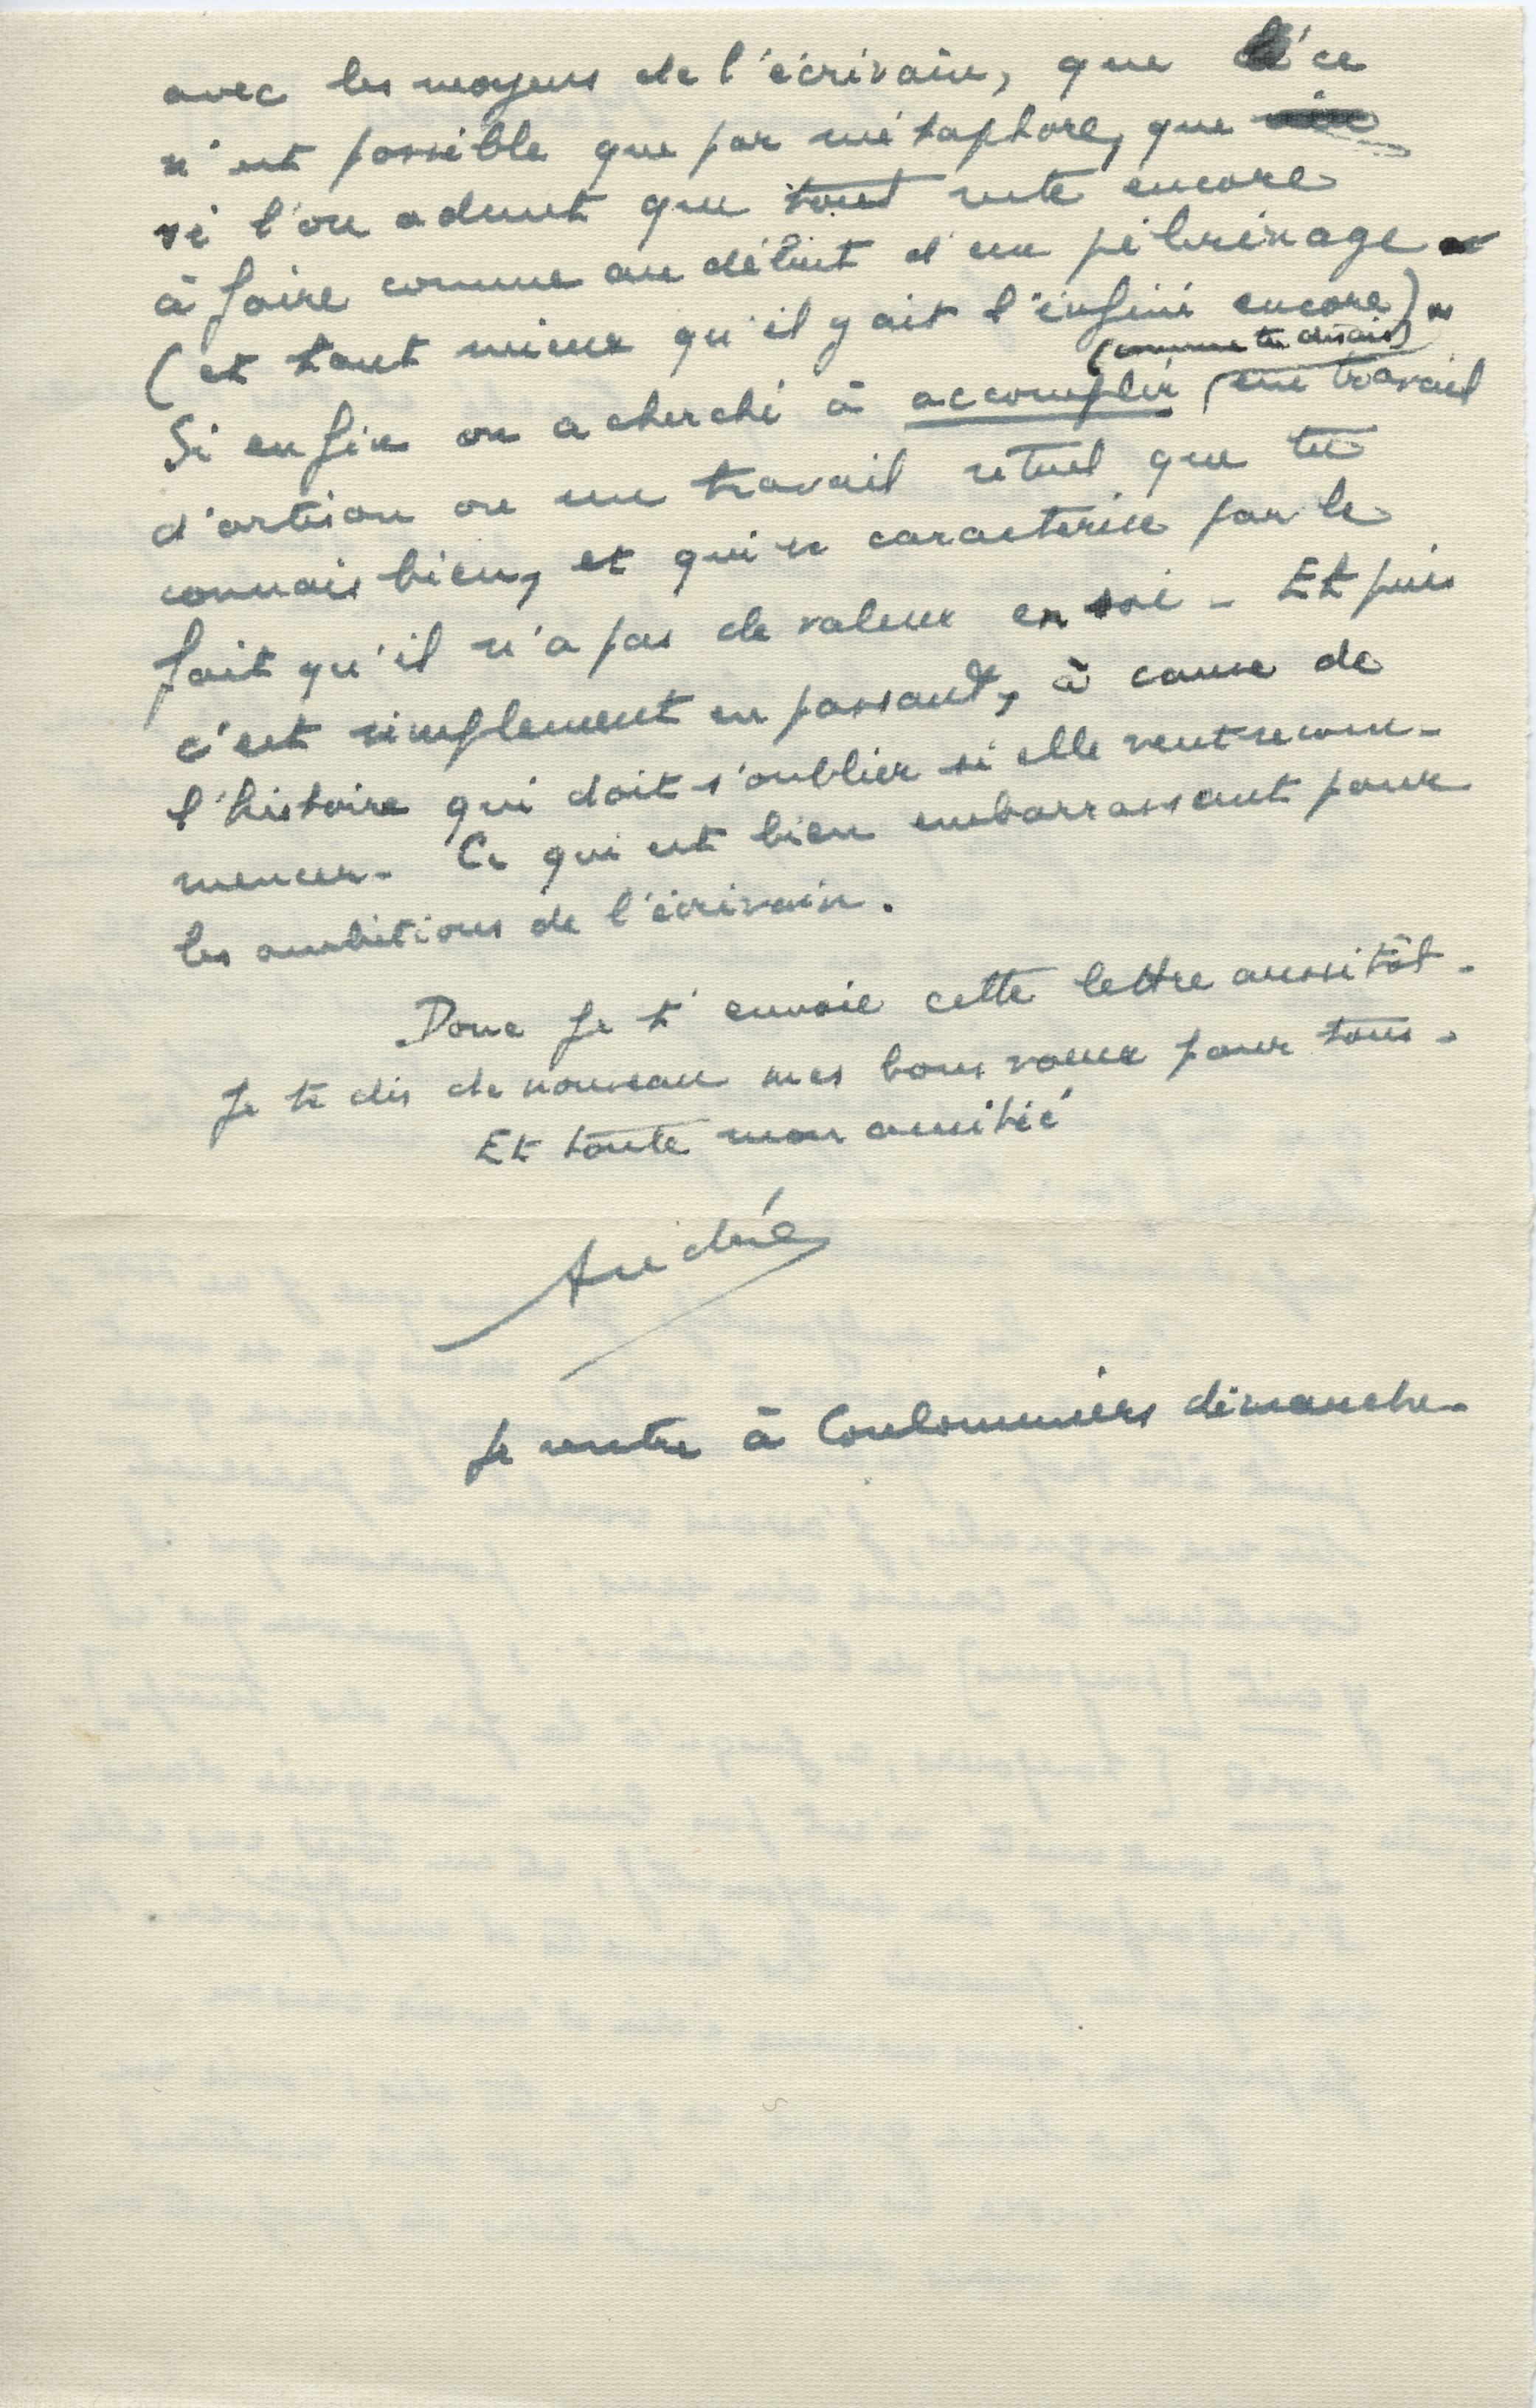 avec les moyens de l'écrivain, que ce
n'est possible que par métaphore, que
si l'on admet que tout reste encore
à faire comme au début d'un pèlerinage
(et tant mieux qu'il y ait l'infini encore).
(comme tu disais)
Si enfin on a cherché à accomplir un travail
d'artisan ou un travail rituel que tu
connais bien, et qui se caractérise par le
fait qu'il n'a pas de valeur en soi - Et puis
c'est simplement en passant, à cause de
l'histoire qui doit s'oublier si elle veut recom-
mencer. Ce qui est bien embarrassant pour
les ambitions de l'écrivain.
Donc je t'envoie cette lettre aussitôt.
Je te dis de nouveau mes bons vœux pour tous.
Et toute mon amitié
André
Je rentre à Coulommiers dimanche.